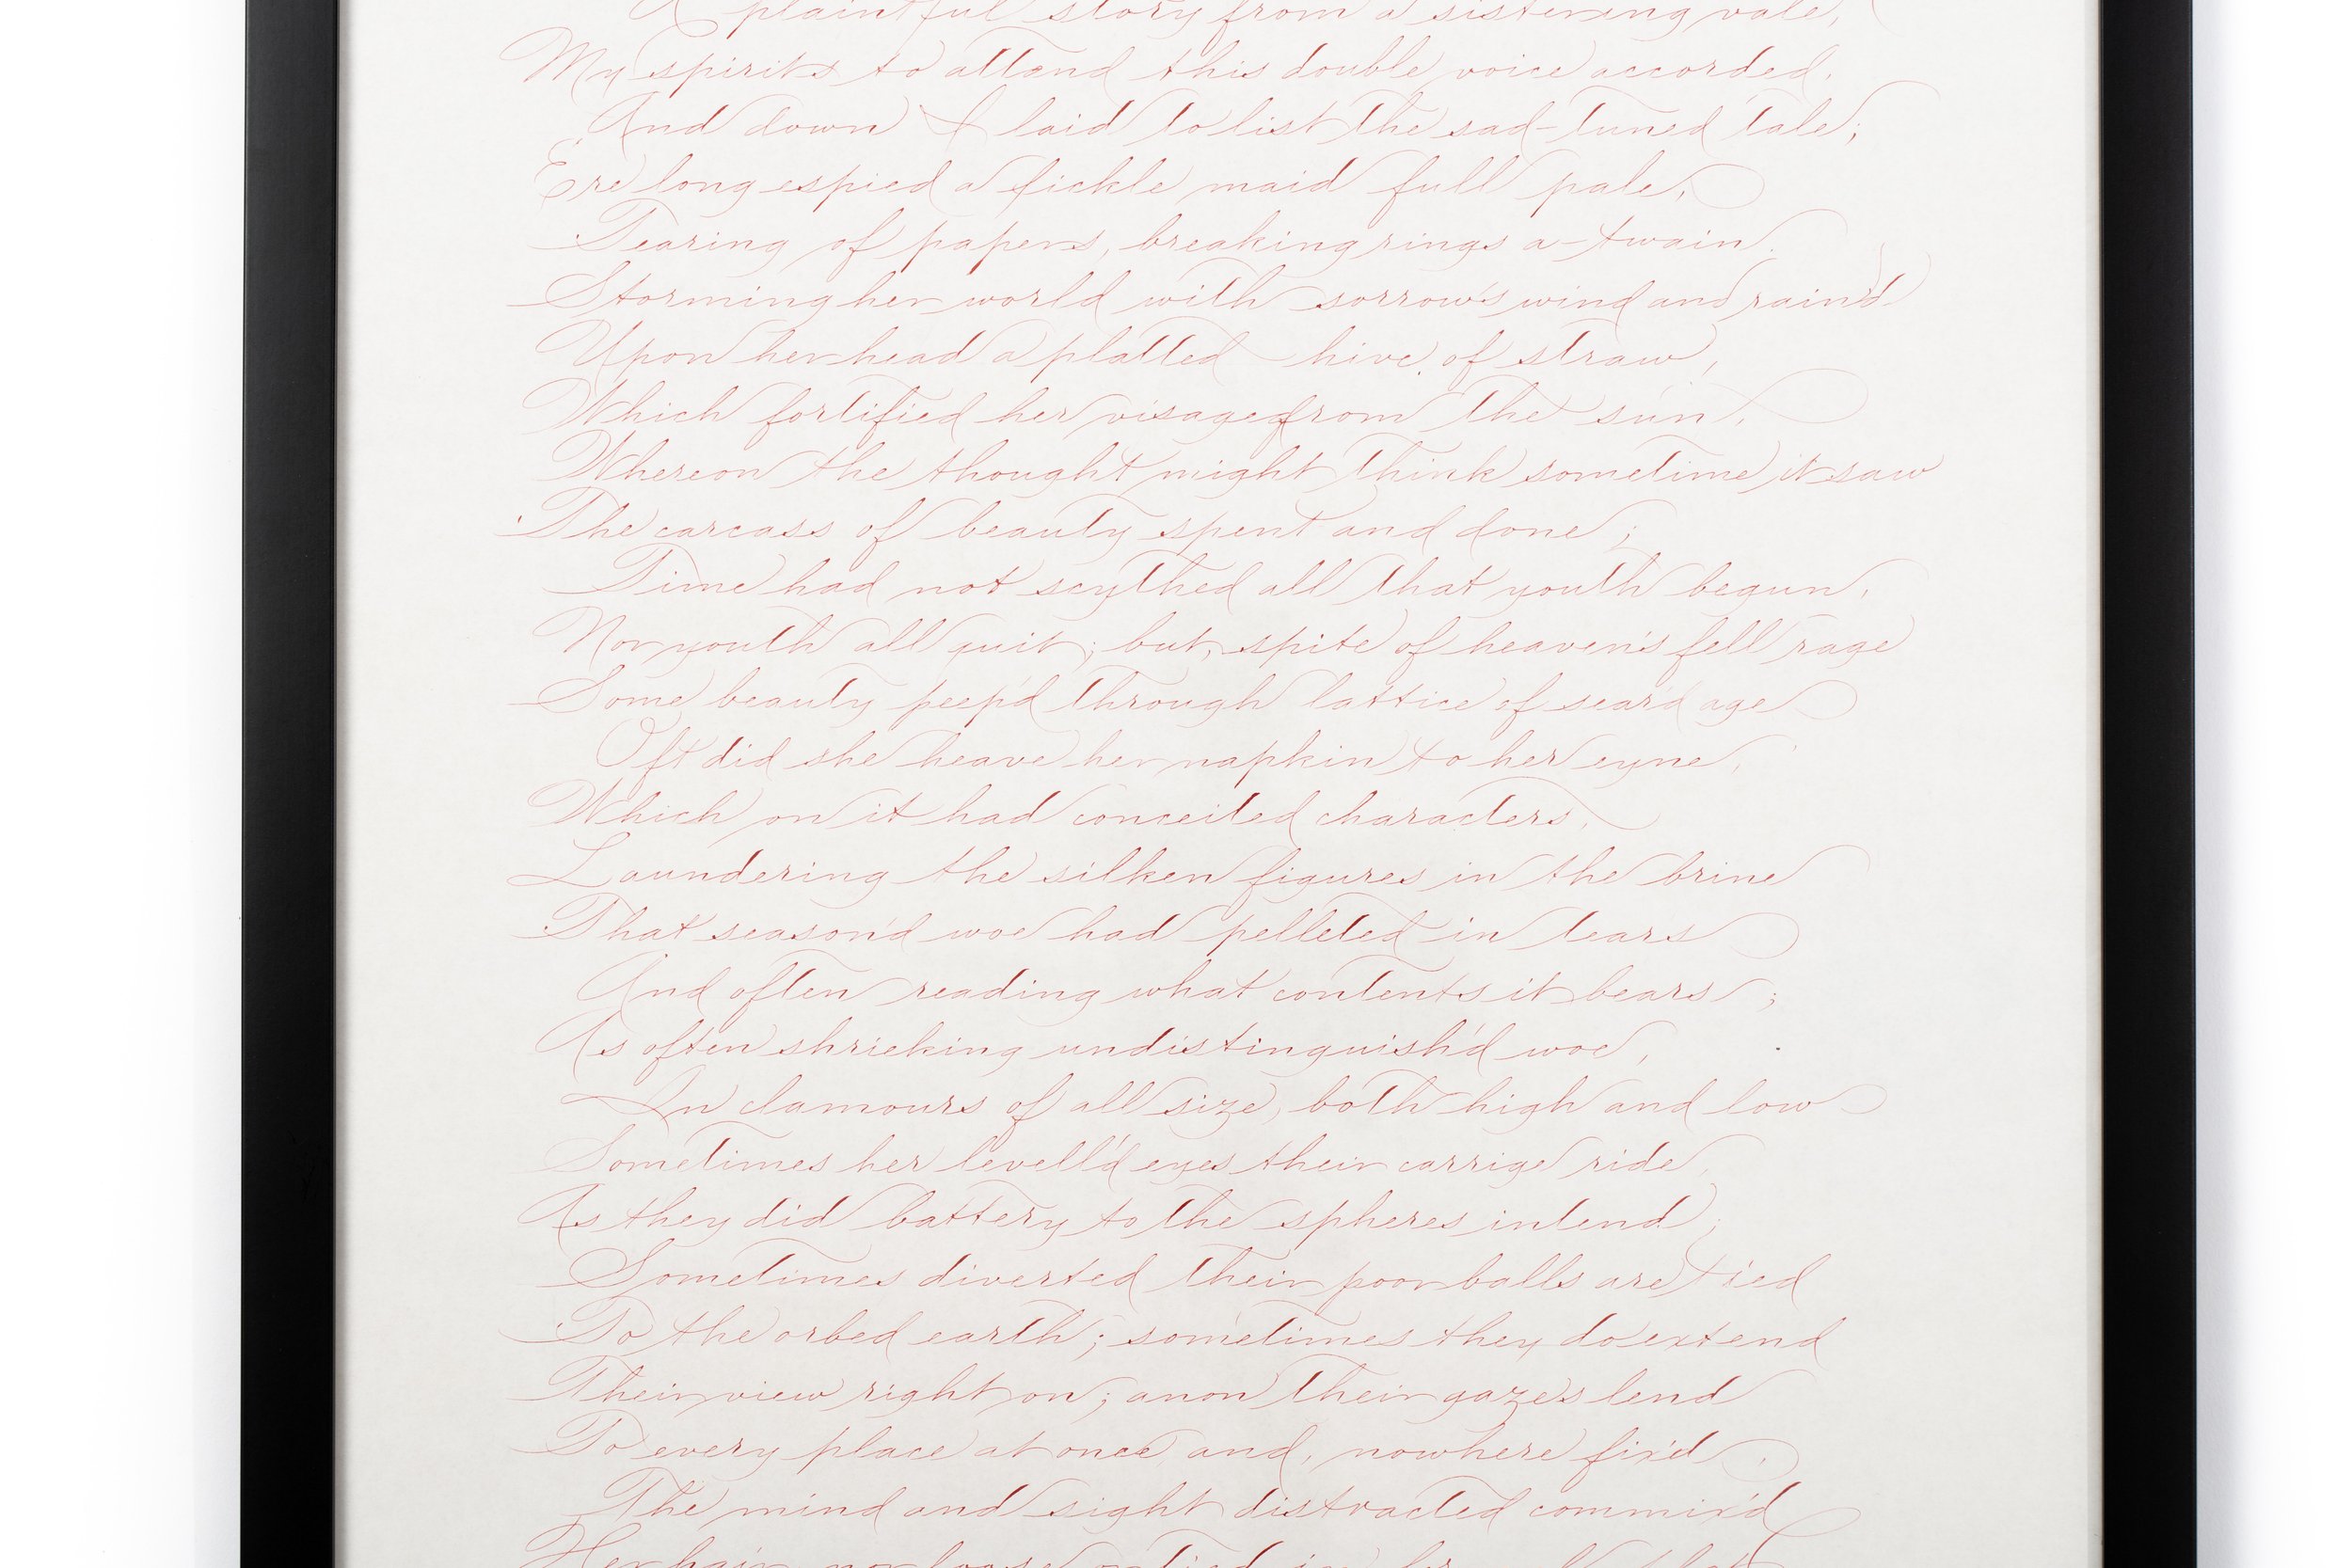 A plaintful story from a sistering vale,
My spirits to attend this double voice accorded,
And down I laid to list the sad-tuned tale;
Ere long espied a fickle maid full pale,
Tearing of papers, breaking rings a-twain,
Storming her world with sorrow's wind and rain'd
Upon her head a platted hive of straw,
Which fortified her visage from the sun,
Whereon the thought might think sometime it saw
The carcass of beauty spent and done;
Time had not scythed all that youth begun,
Nor youth all quit; but, spite of heaven's fell rage
Some beauty peep'd through lattice of sear'd age
Oft did she heave her napkin to her eyne,
Which on it had conceited characters,
Laundering the silken figures in the brine
That season'd woe had pelleted in tears
And often reading what contents it bears;
As often shrieking undistinguish'd woe,
In clamours of all size, both high and low
Sometimes her levell'd eyes their carrige ride,
As they did battery to the spheres intend;
Sometimes diverted their poor balls are tied
To the orbed earth; sometimes they do extend
Their view right on; anon their gazes lend
To every place at once and, nowhere fix'd,
The mind and sight distracted commix'd
Her hair, nor loose nor tied in